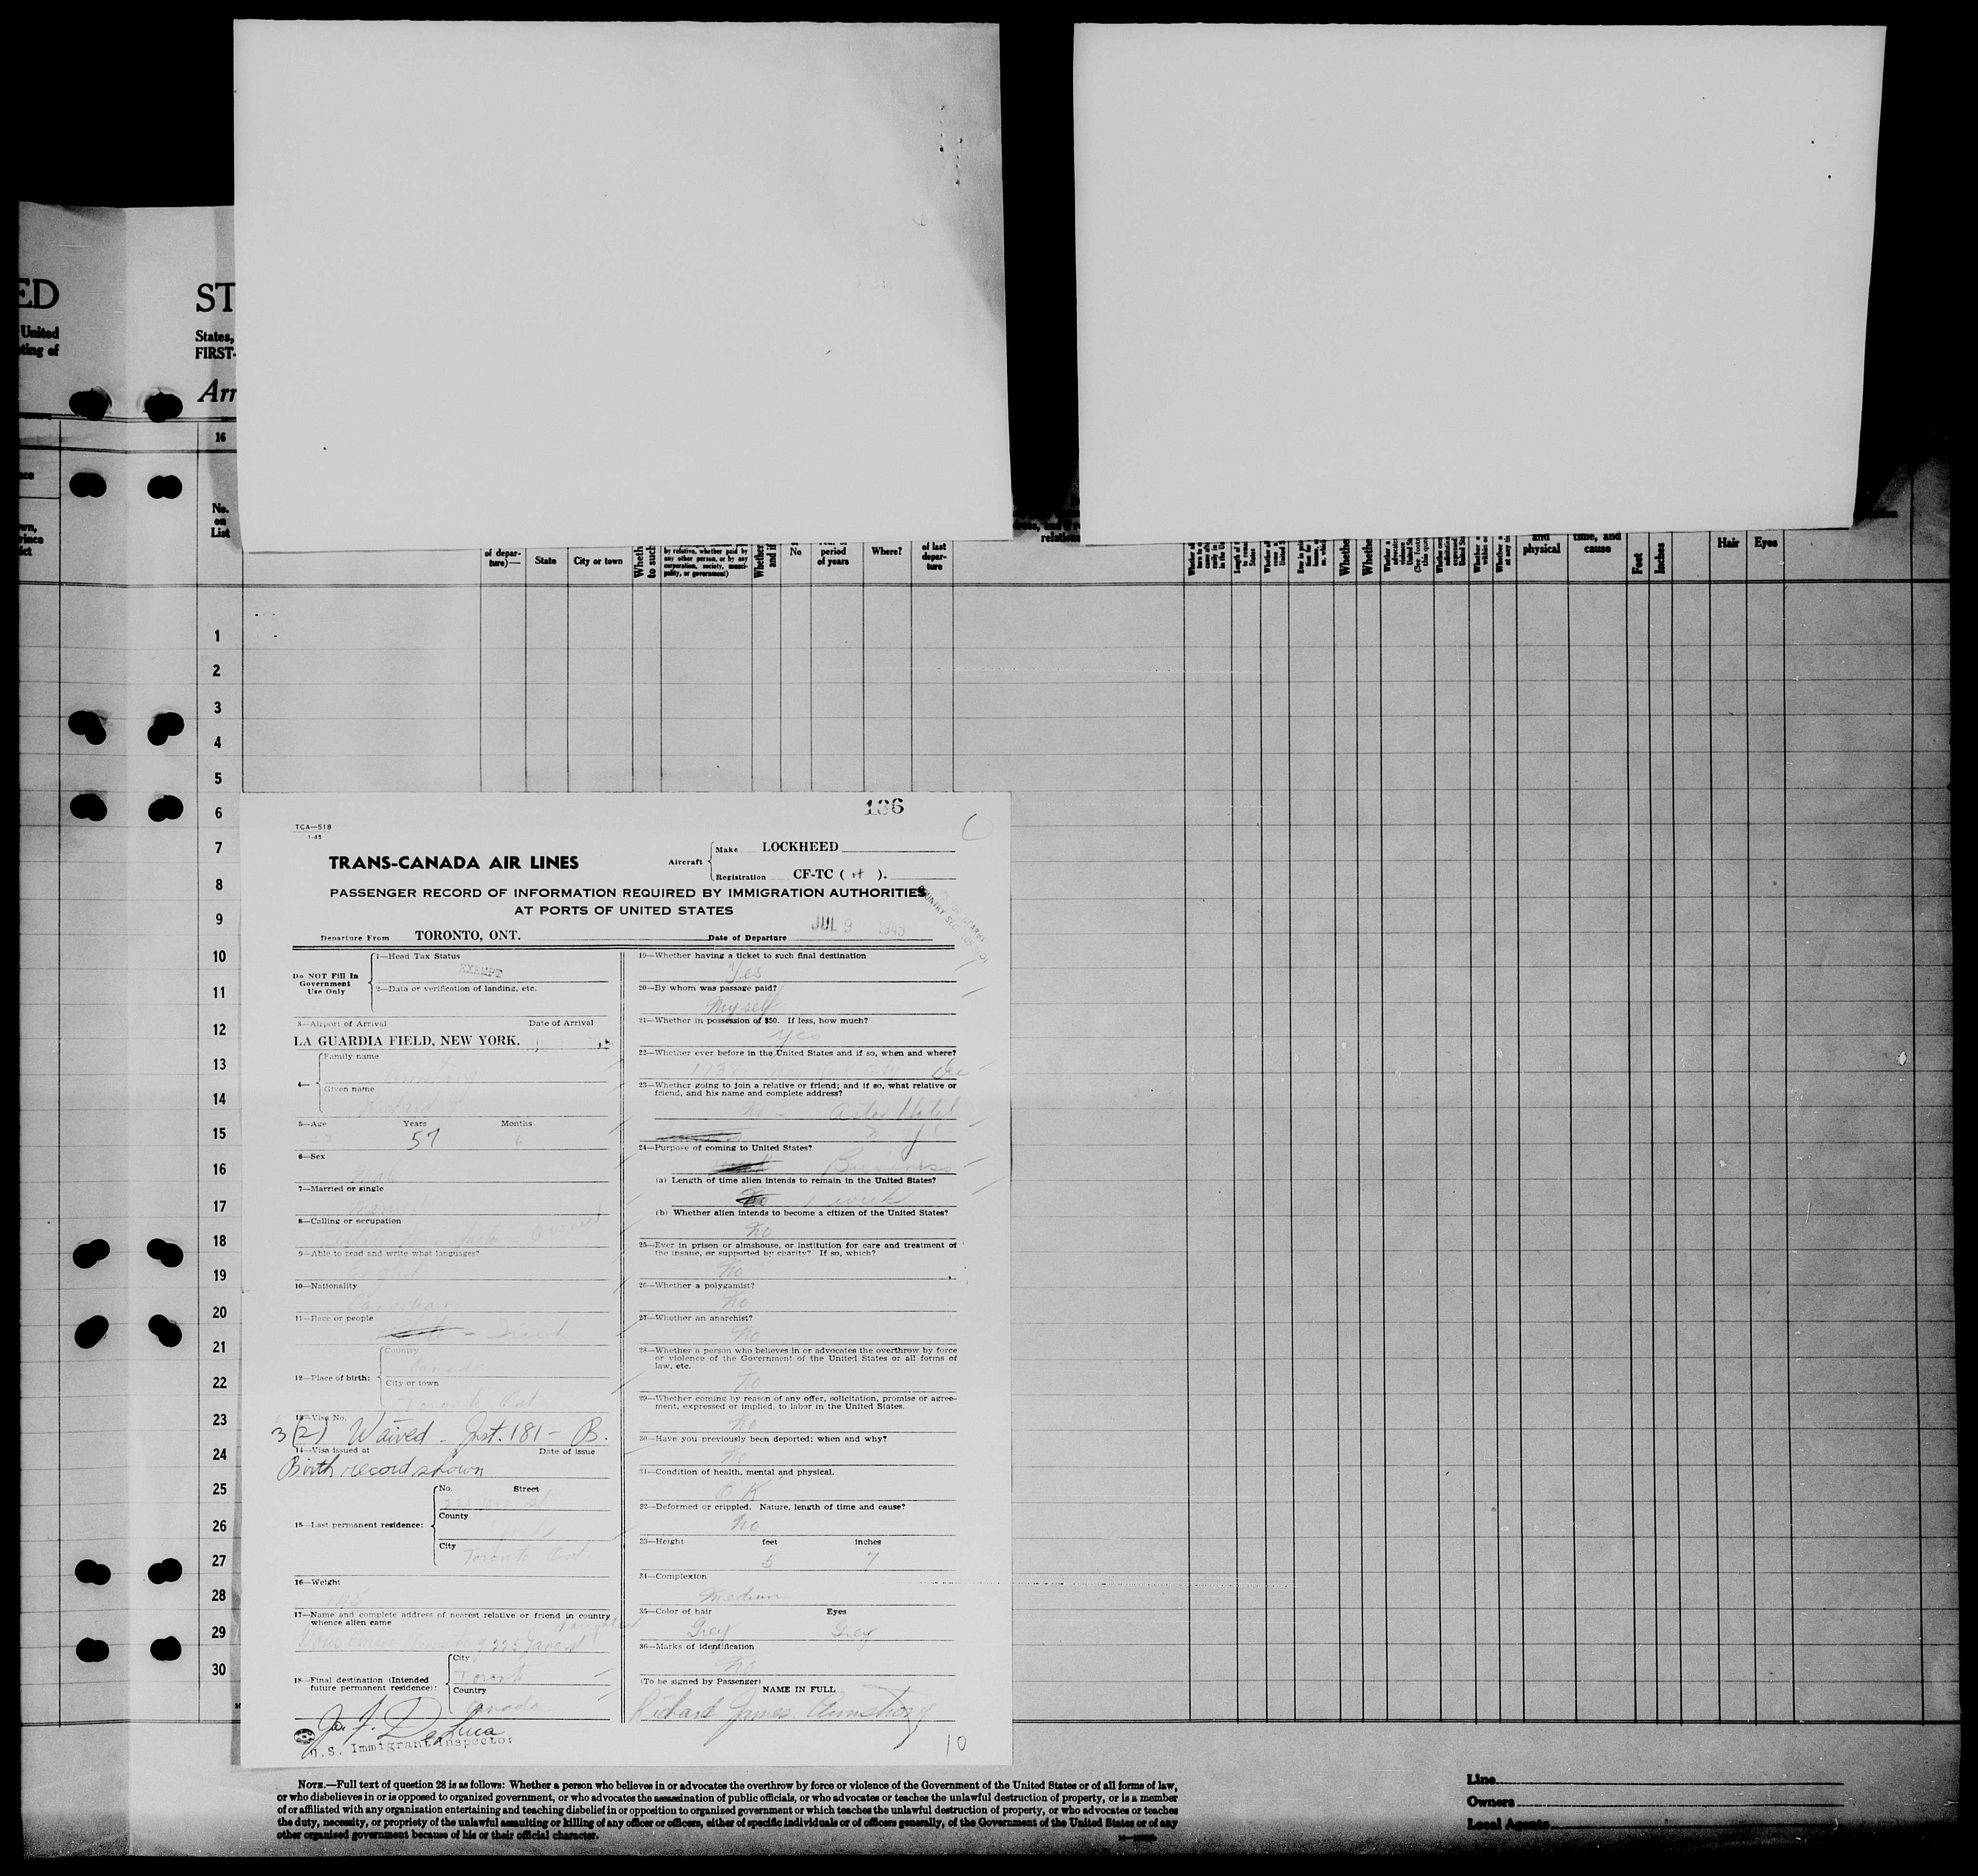 ED
ST
United
States,
ting of
FIRST-
Arr
16
No.
on
List
of depar-
ture)—
State
City or town
Wheth
to such
by relative, whether paid by
any other person, or by any
corporation, society, munici-
pality, or government)
Whether
and if
No
period
of years
Where?
of last
depar-
ture
relation
and
physical
time, and
cause
Feet
Inches
Hair
Eyes
1
2
3
4
5
6
7
8
9
10
11
12
13
14
15
16
17
18
19
20
21
22
23
24
25
26
27
28
29
30
136
TCA—518
1-45
TRANS-CANADA AIR LINES
Aircraft
Make LOCKHEED
Registration CF-TC ( ).
PASSENGER RECORD OF INFORMATION REQUIRED BY IMMIGRATION AUTHORITIES
AT PORTS OF UNITED STATES
Departure From TORONTO, ONT.
Date of Departure JUL 9 1945
Do NOT Fill In
Government
Use Only
1—Head Tax Status
EXEMPT
2—Data or verification of landing, etc.
3—Airport of Arrival Date of Arrival
LA GUARDIA FIELD, NEW YORK.
4—
Family name
Armstrong
Given name
Richard J
5—Age Years Months
57 6
6—Sex
Male
7—Married or single
Married
8—Calling or occupation
Owner
9—Able to read and write what languages?
English
10—Nationality
Canadian
11—Race or people
Irish
12—Place of birth:
Country
Canada
City or town
Toronto Ont
13—Visa No.
3(2) Waived - Inst. 181 - B.
14—Visa issued at Date of issue
Birth record shown
15—Last permanent residence:
No. Street
County
York
City
Toronto Ont.
16—Weight
17—Name and complete address of nearest relative or friend in country
whence alien came
Daughter
Armstrong 225 Jane st
18—Final destination (Intended
future permanent residence):
City
Toronto
Country
Canada
Jo. F. DeLuca
U.S. Immigrant Inspector
19—Whether having a ticket to such final destination
Yes
20—By whom was passage paid?
Myself
21—Whether in possession of $50. If less, how much?
yes
22—Whether ever before in the United States and if so, when and where?
1938 New York City
23—Whether going to join a relative or friend; and if so, what relative or
friend, and his name and complete address?
no - Astor Hotel
N Y C
24—Purpose of coming to United States?
Business
(a) Length of time alien intends to remain in the United States?
1 week
(b) Whether alien intends to become a citizen of the United States?
No
25—Ever in prison or almshouse, or institution for care and treatment of
the insane, or supported by charity? If so, which?
No
26—Whether a polygamist?
No
27—Whether an anarchist?
No
28—Whether a person who believes in or advocates the overthrow by force
or violence of the Government of the United States or all forms of
law, etc.
No
29—Whether coming by reason of any offer, solicitation, promise or agree-
ment, expressed or implied, to labor in the United States.
No
30—Have you previously been deported; when and why?
No
31—Condition of health, mental and physical.
O K
32—Deformed or crippled. Nature, length of time and cause?
No
33—Height feet inches
5 7
34—Complexion
Medium
35—Color of hair Eyes
Grey Grey
36—Marks of identification
No
(To be signed by Passenger)
NAME IN FULL
Richard James Armstrong
10
NOTE.—Full text of question 28 is as follows: Whether a person who believes in or advocates the overthrow by force or violence of the Government of the United States or of all forms of law,
or who disbelieves in or is opposed to organized government, or who advocates the assassination of public officials, or who advocates or teaches the unlawful destruction of property, or is a member
of or affiliated with any organization entertaining and teaching disbelief in or opposition to organized government or which teaches the unlawful destruction of property, or who advocates or teaches
the duty, necessity, or propriety of the unlawful assaulting or killing of any officer or officers, either of specific individuals or of officers generally, of the Government of the United States or of any
other organized government because of his or their official character.
Line
Owners
Local Agents